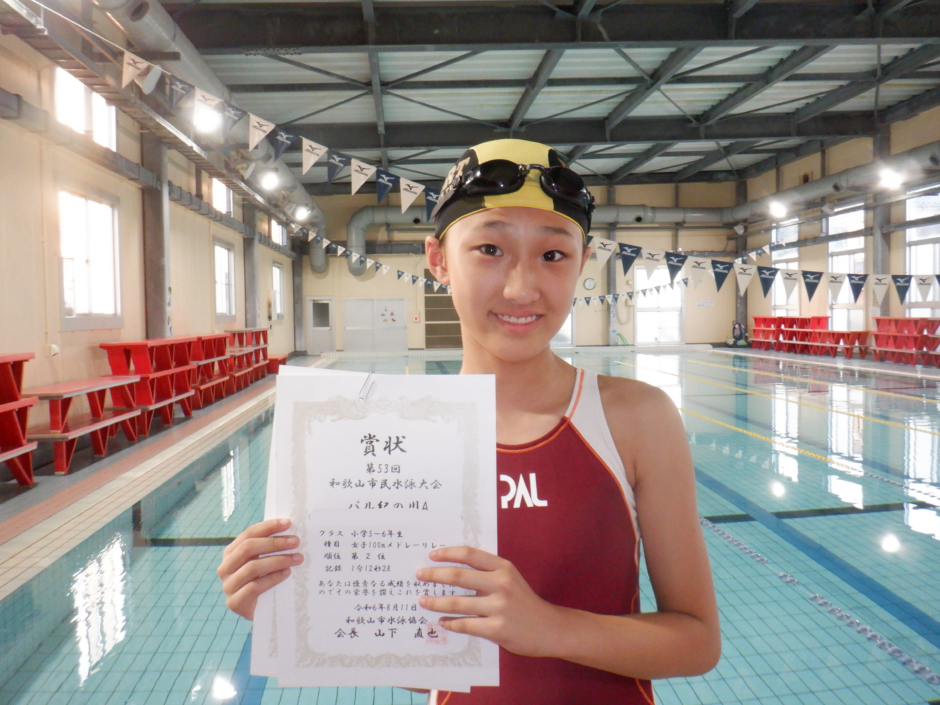 賞状
第53回
和歌山市民水泳大会
パル紀の川A
クラス 小学5~6年生
種目 女子100mメドレーリレー
順位 第 2 位
記録 1分12秒28
あなたは優秀なる成績を収めました
のでその栄誉を讃えこれを賞します
令和6年8月11日
和歌山市水泳協会
会長 山下 直也
PAL
MIZUNO